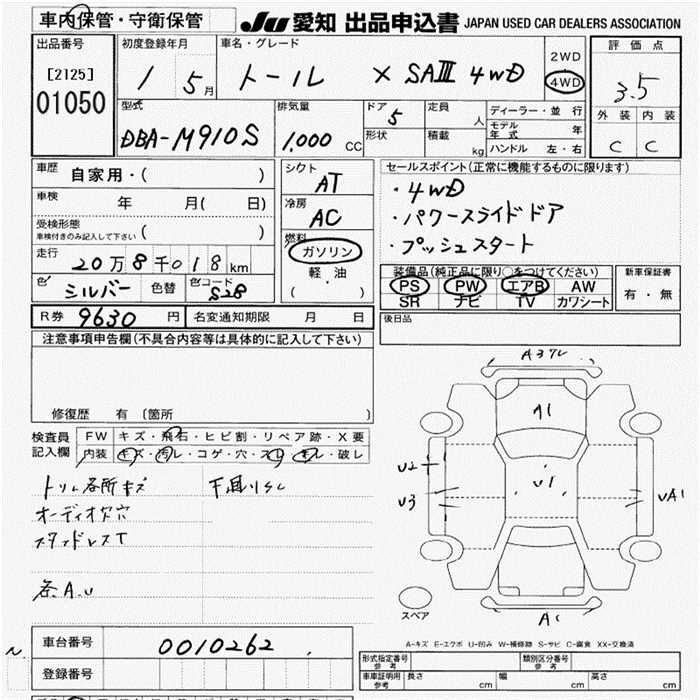 車内保管・守衛保管
JU 愛知 出品申込書 JAPAN USED CAR DEALERS ASSOCIATION
出品番号
[2125]
01050
初度登録年月
1 5月
車名・グレード
トール X SAⅢ 4WD
2WD
4WD
評価点
3.5
外装 内装
C C
型式
DBA-M910S
排気量
1,000 CC
ドア 5
形状
定員 人
積載 kg
ディーラー・並行
モデル年式 年
ハンドル 左・右
車歴
自家用・( )
車検
年 月( 日)
受検形態
車検付きのみ記入して下さい ( )
走行
20万8千018km
色 シルバー 色替
色コード S28
シフト
AT
冷房
AC
燃料
ガソリン
軽油
( ・ )
セールスポイント(正常に機能するものに限ります)
・4WD
・パワースライドドア
・プッシュスタート
装備品(純正品に限り○をつけてください)
PS PW エアB AW
SR ナビ TV カワシート
新車保証書
有・無
R券 9630 円
名変通知期限 月 日
後日品
注意事項申告欄(不具合内容等は具体的に記入して下さい)
修復歴 有 〔箇所 〕
検査員記入欄
FW キズ・飛石・ヒビ割・リペア跡・X要
内装 キズ・汚レ・コゲ・穴・スレ・モレ・破レ
トリム各所キズ
オーディオ欠穴
スタッドレスT
各A.U
下廻りサビ
A3
A1
U2
U3
U1
UA1
スペア
A-キズ E-エクボ U-凹み W-補修跡 S-サビ C-腐食 XX-交換済
車台番号
0010262
登録番号
型式指定番号 参考
類別区分番号 参考
車庫証明用 参考
長さ cm 幅 cm 高さ cm